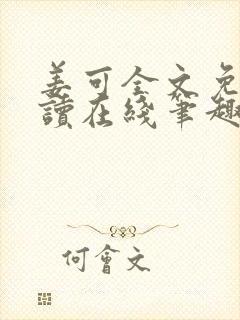 姜可全文免
讀在綫筆趣
何會文